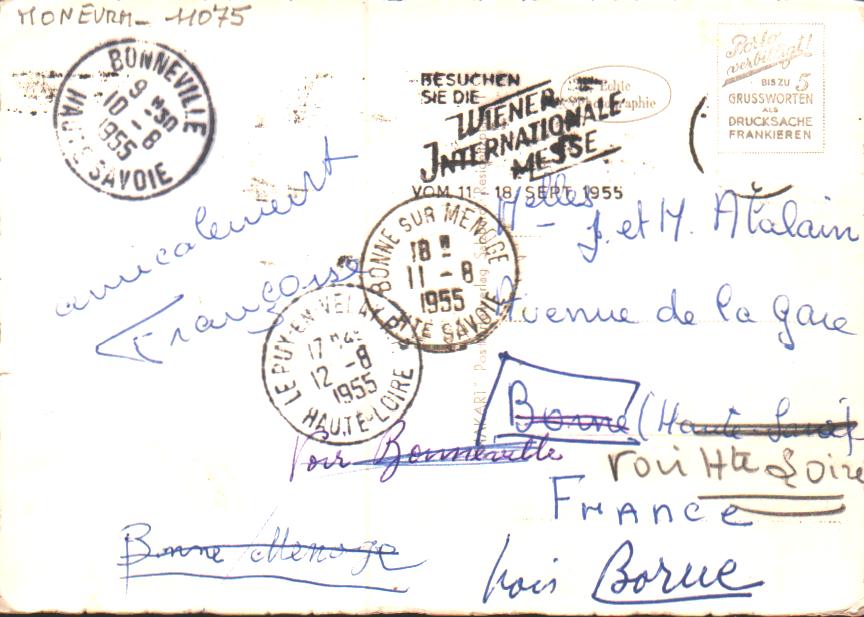 MONEVRA - 11075
BONNEVILLE
9 H 30
10 - 8
1955
HAUTE-SAVOIE
BESUCHEN
SIE DIE
WIENER
INTERNATIONALE
MESSE
VOM 11 18 SEPT 1955
Echte
Photographie
Porto
verbilligt!
BIS ZU 5
GRUSSWORTEN
ALS
DRUCKSACHE
FRANKIEREN
amicalement
Françoise
BONNE SUR MENOGE
18 H
11 - 8
1955
HTE SAVOIE
LE PUY-EN-VELAY
17 H 45
12 - 8
1955
HAUTE-LOIRE
Melles
J. et M. Atalain
Avenue de la Gare
Borne (Haute Savoie
voir Hte Loire
Voir Bonneville
FRANCE
Bonne/Menoge
voir Borne